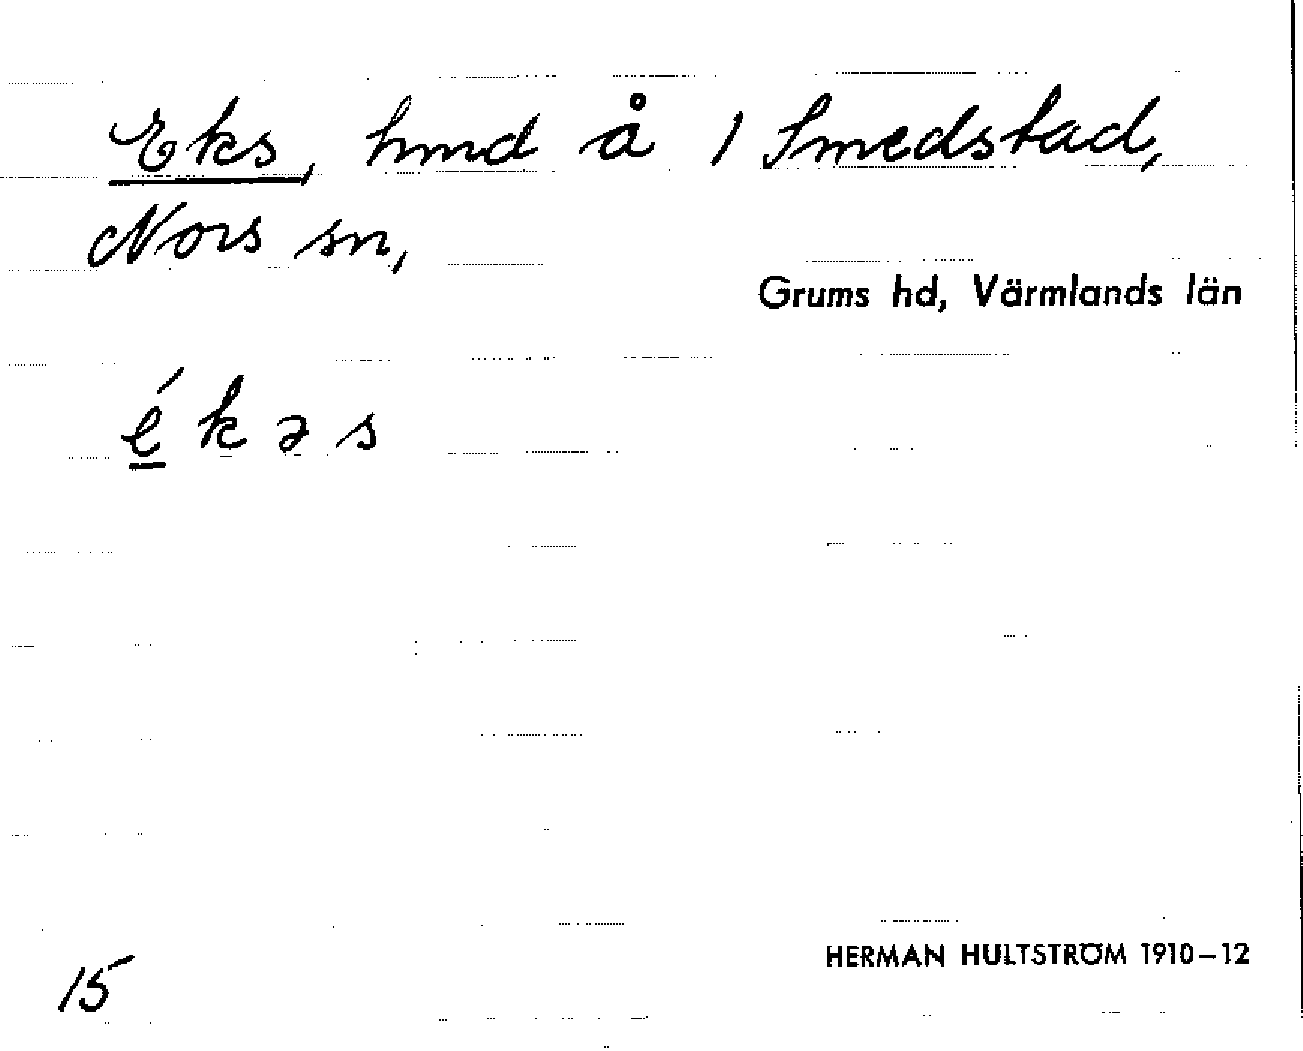 Eks, hmd å 1 Smedstad,
Nors sn,
Grums hd, Värmlands län
é k ə s
15
HERMAN HULTSTRÖM 1910–12